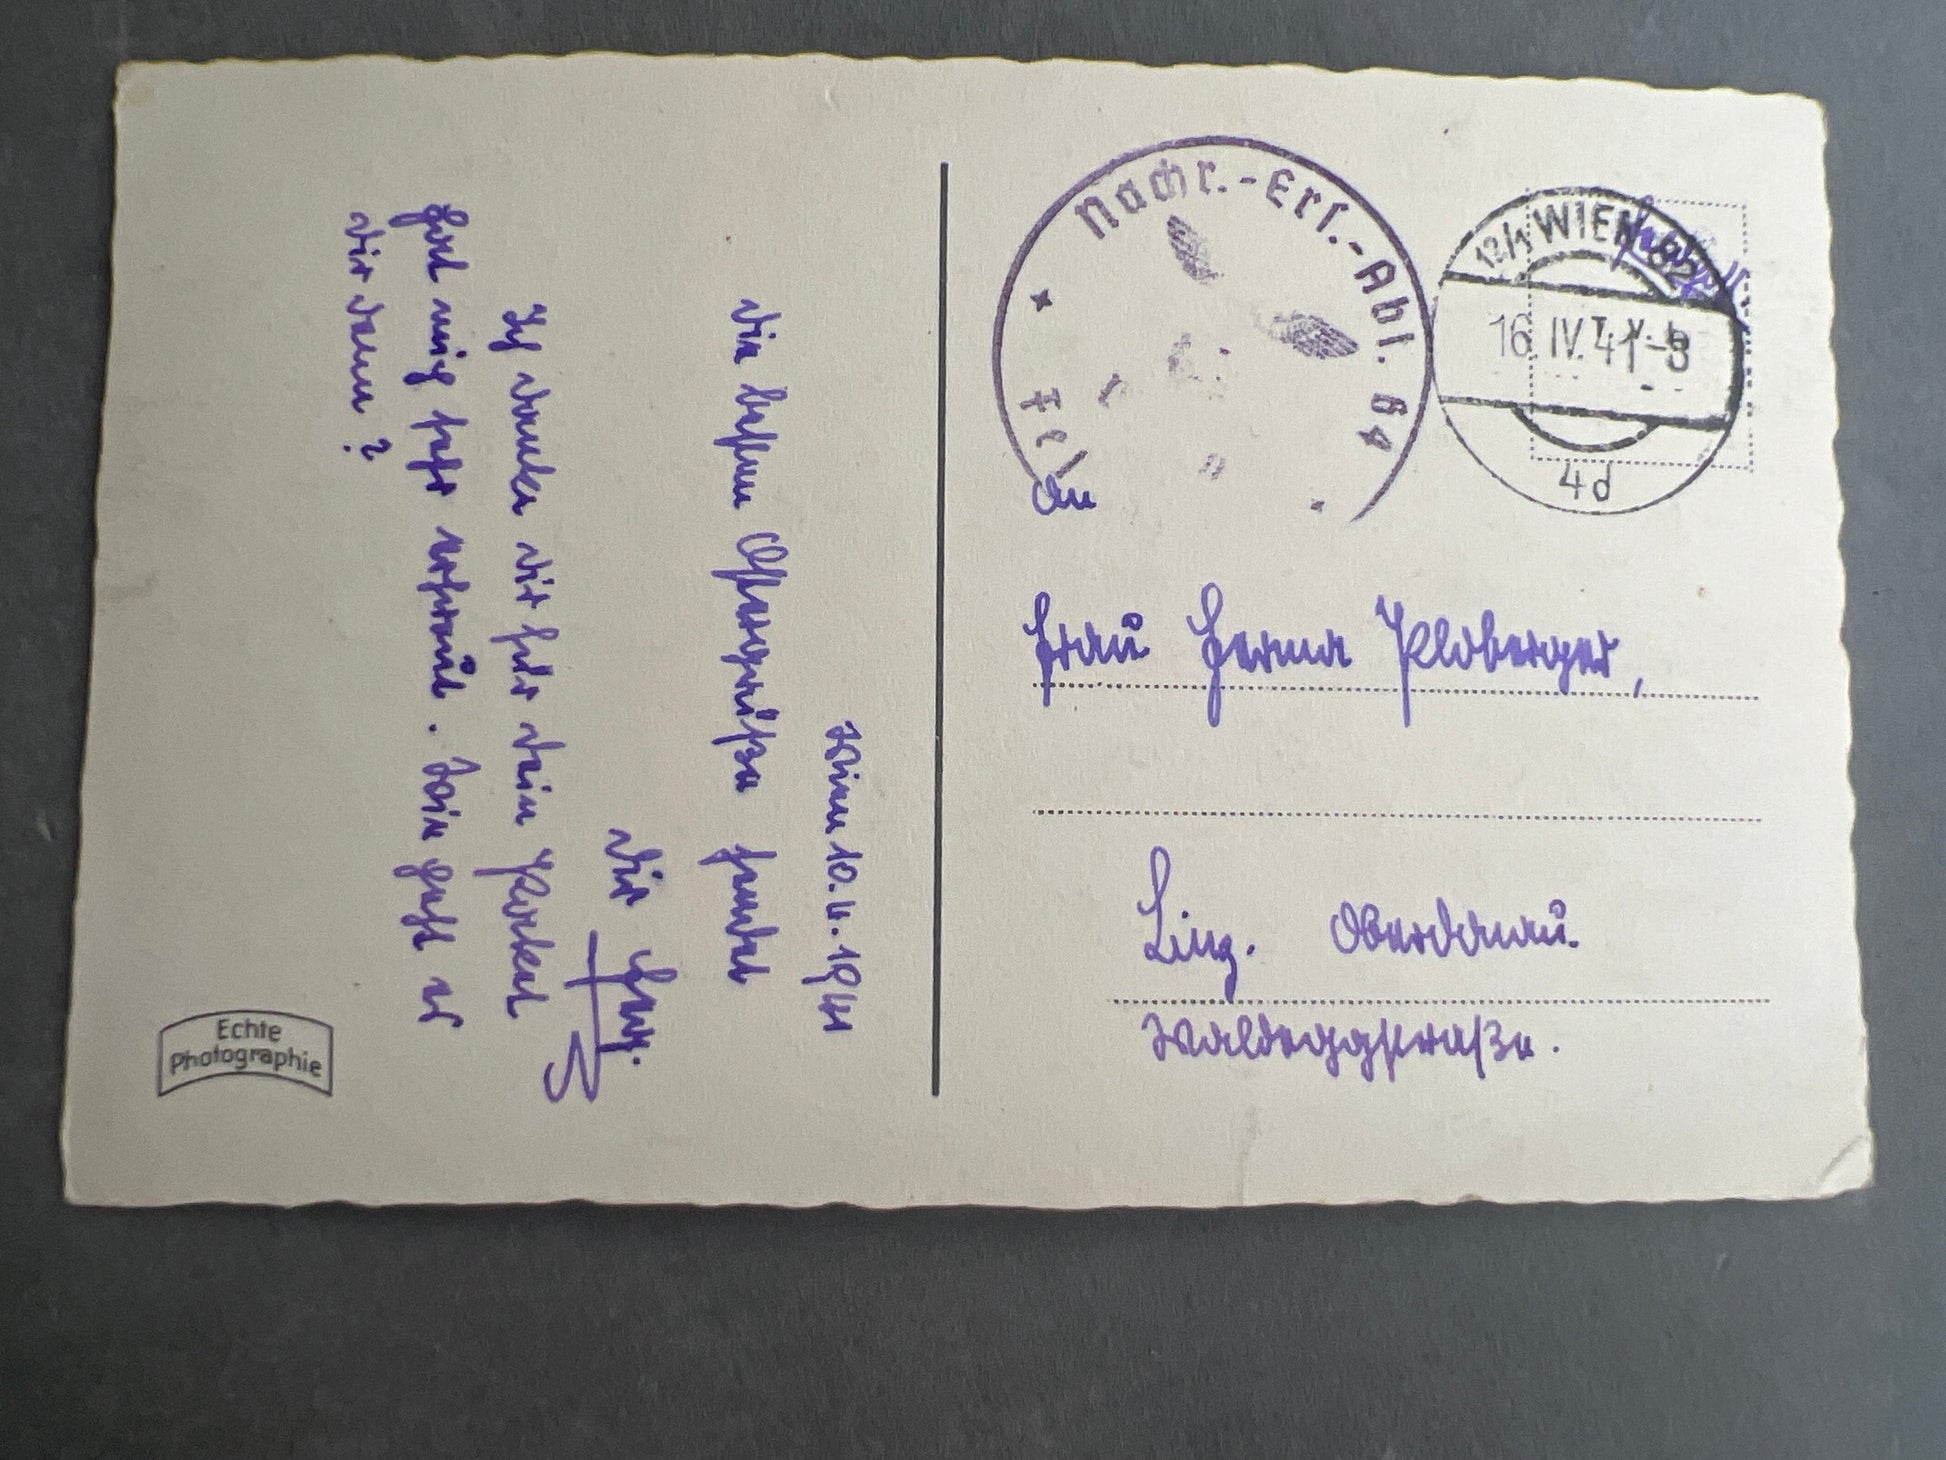 Wien 10.4.1941
Die besten Ostergrüße sendet
Dir
Ich danke dir sehr dein Packet
Hat mich sehr erfreut. Wie geht es
dir denn?
Echte
Photographie
Nachr.-Ers.-Abt. 64
12/1 WIEN 82
16. IV. 41 -8
4d
An
Frau Herma Ploberger,
Linz. Oberdonau.
Waldeggstraße.